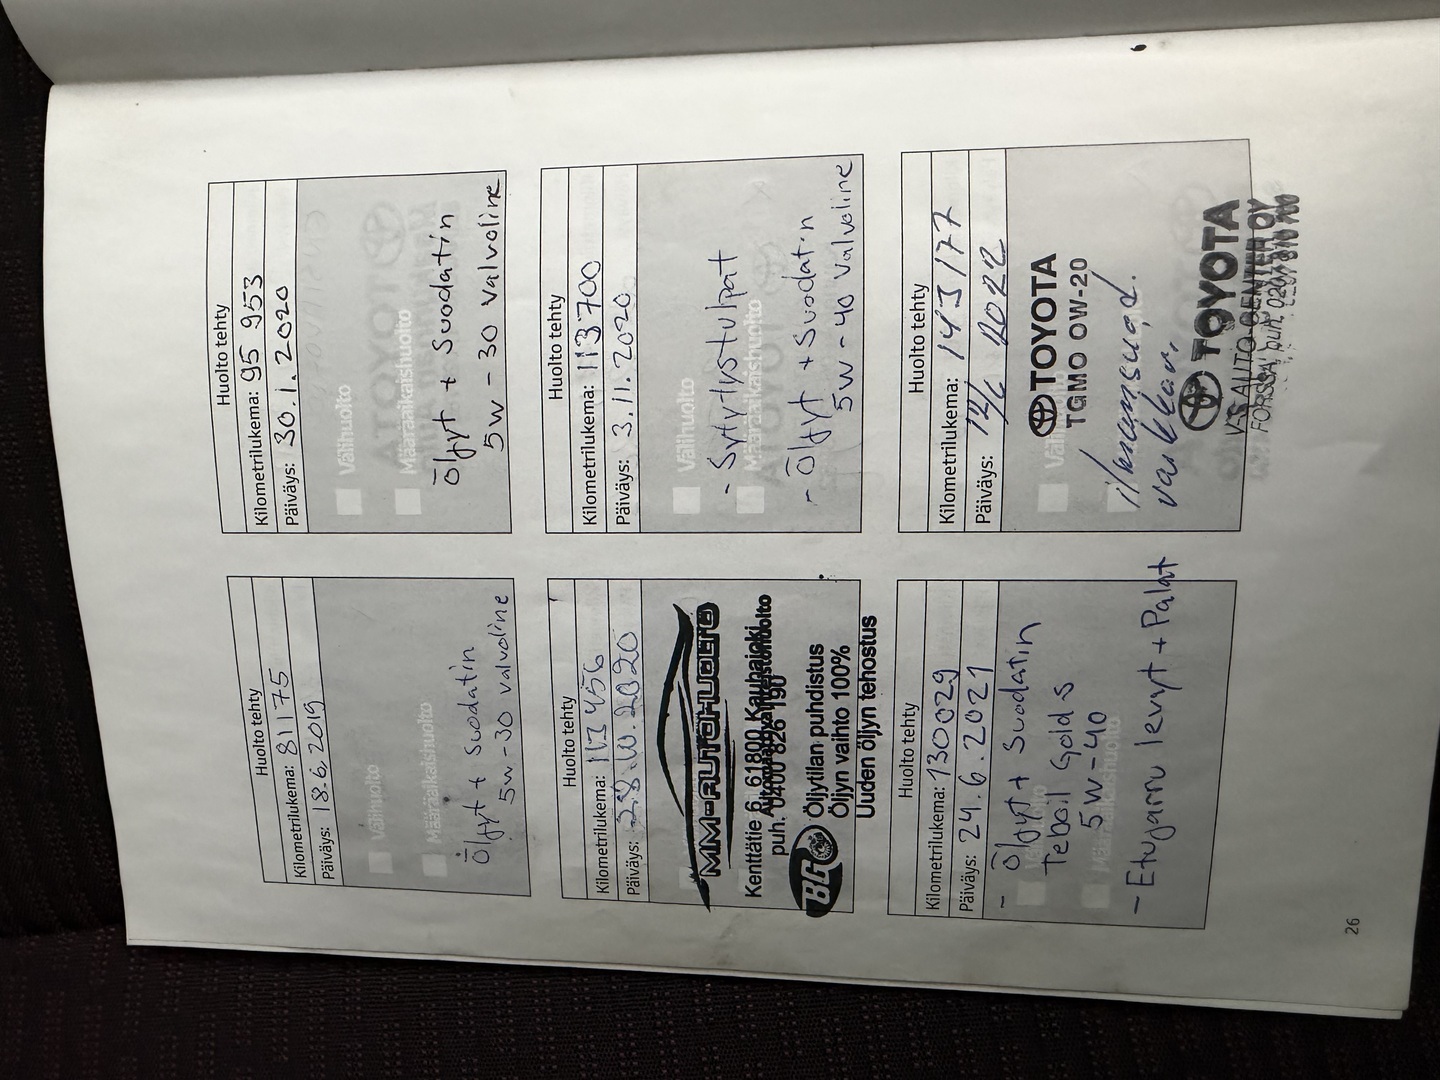 Huolto tehty
Kilometrilukema: 81175
Päiväys: 18.6.2019
Välihuolto
Määräaikaishuolto
Öljyt + Suodatin
5w-30 Valvoline
Huolto tehty
Kilometrilukema: 95 953
Päiväys: 30.1.2020
Välihuolto
Määräaikaishuolto
Öljyt + Suodatin
5w-30 Valvoline
Huolto tehty
Kilometrilukema: 113 456
Päiväys: 28.10.2020
MM-AUTOHUOLTO
Kenttätie 6, 61800 Kauhajoki
puh. 0400 826 190
BG
Öljytilan puhdistus
Öljyn vaihto 100%
Uuden öljyn tehostus
Huolto tehty
Kilometrilukema: 113 700
Päiväys: 3.11.2020
Välihuolto
Määräaikaishuolto
- Sytytystulpat
- Öljyt + Suodatin
5w-40 Valvoline
Huolto tehty
Kilometrilukema: 130029
Päiväys: 24.6.2021
Määräaikaishuolto
- Öljyt + Suodatin
Teboil Gold S
5w-40
- Etujarru levyt + Palat
Huolto tehty
Kilometrilukema: 143177
Päiväys: 14/6 2022
Välihuolto
TOYOTA
TGMO 0W-20
ilmansuod.
TOYOTA
V-S AUTO CENTER OY
FORSSA, puh.
26